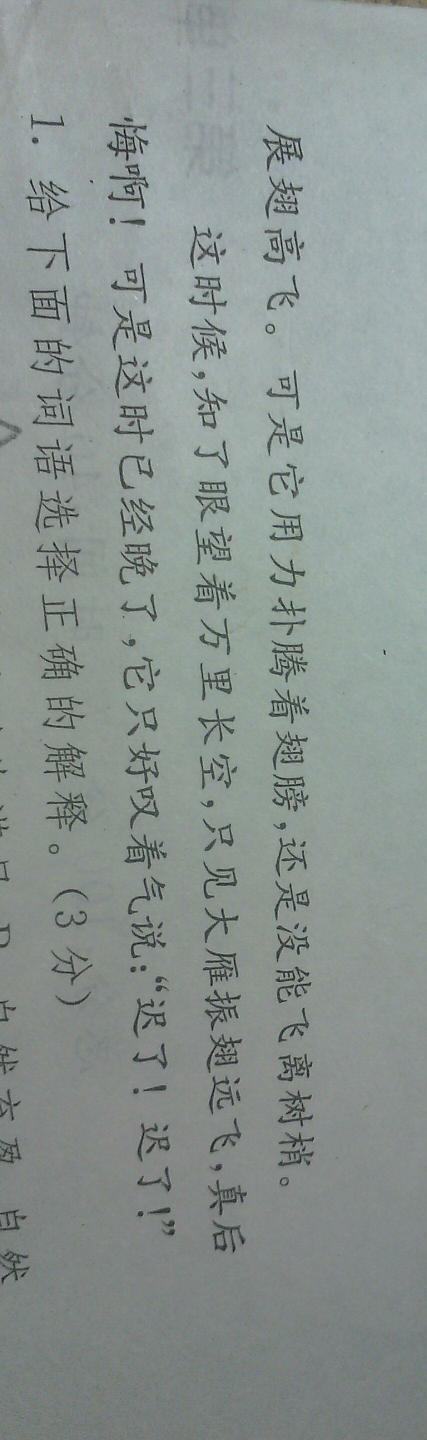 展翅高飞。可是它用力扑腾着翅膀,还是没能飞离树梢。
这时候,知了眼望着万里长空,只见大雁振翅远飞,真后
悔啊!可是这时已经晚了,它只好叹着气说:“迟了!迟了!”
1. 给下面的词语选择正确的解释。(3分)